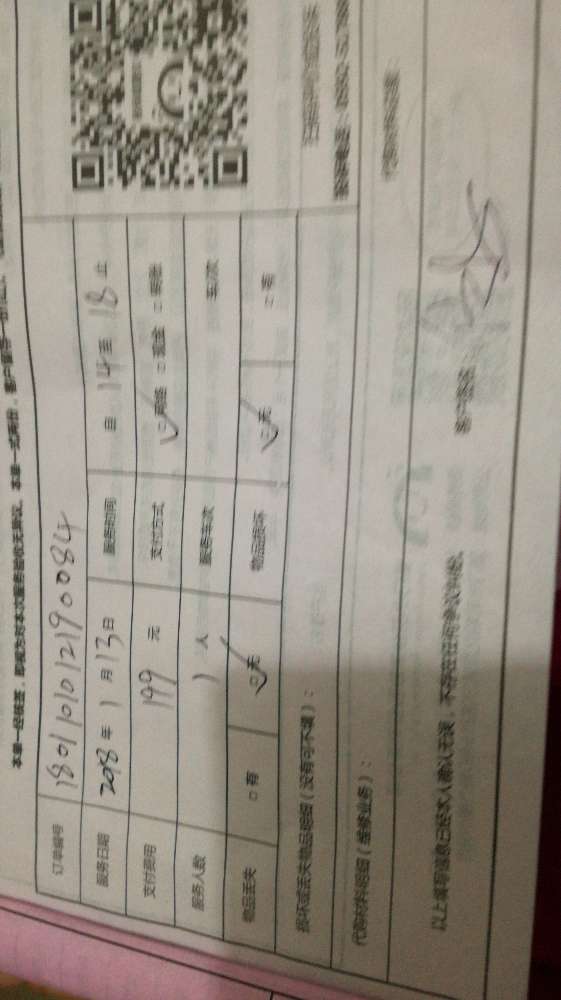 本单一经核签，即视为对本次服务验收无异议。本单一式两份，客户留存一份
订单编号 180110101219 0084
服务日期 2018年 1月 13日 服务时间 自 14 至 18 止
支付费用 199 元 支付方式 网络 □现金
服务人数 1 人 服务车次 车/次
物品丢失 □有 无 物品损坏 无 有
损坏或丢失物品明细（没有可不填）：
代购材料明细（维修业务）：
以上填写信息已经本人确认无误，不存在任何争议纠纷。
客户签名：